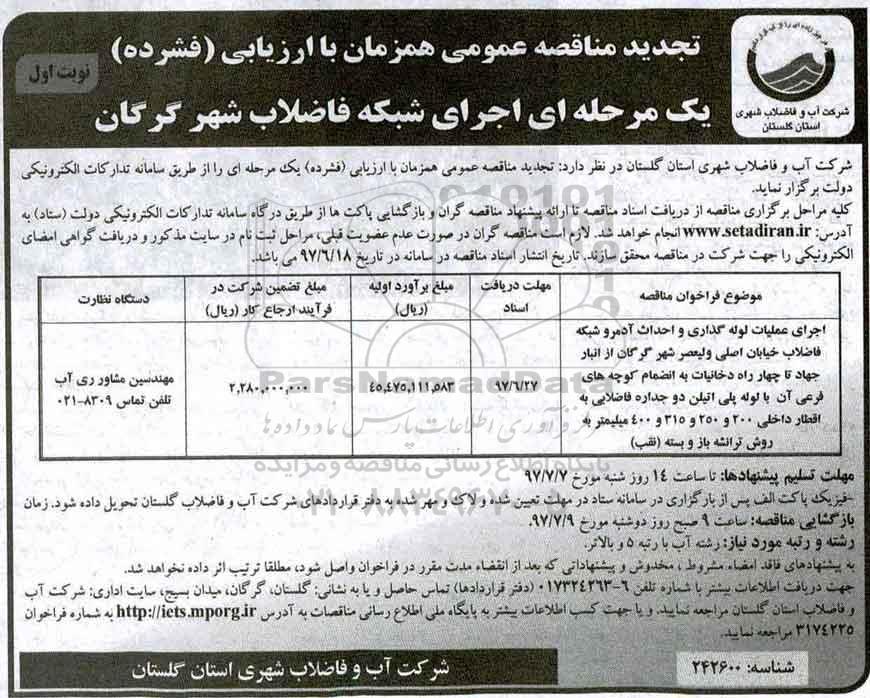 تجدید مناقصه عمومی همزمان با ارزیابی (فشرده)
نوبت اول
یک مرحله ای اجرای شبکه فاضلاب شهر گرگان
شرکت آب و فاضلاب شهری
استان گلستان
شرکت آب و فاضلاب شهری استان گلستان در نظر دارد: تجدید مناقصه عمومی همزمان با ارزیابی (فشرده) یک مرحله ای را از طریق سامانه تدارکات الکترونیکی
دولت برگزار نماید.
کلیه مراحل برگزاری مناقصه از دریافت اسناد مناقصه تا ارائه پیشنهاد مناقصه گران و بازگشایی پاکت ها از طریق درگاه سامانه تدارکات الکترونیکی دولت (ستاد) به
آدرس: www.setadiran.ir انجام خواهد شد. لازم است مناقصه گران در صورت عدم عضویت قبلی، مراحل ثبت نام در سایت مذکور و دریافت گواهی امضای
الکترونیکی را جهت شرکت در مناقصه محقق سازند. تاریخ انتشار اسناد مناقصه در سامانه در تاریخ ۹۷/۶/۱۸ می باشد.
موضوع فراخوان مناقصه
مهلت دریافت اسناد
مبلغ برآورد اولیه (ریال)
مبلغ تضمین شرکت در فرآیند ارجاع کار (ریال)
دستگاه نظارت
اجرای عملیات لوله گذاری و احداث آدمرو شبکه
فاضلاب خیابان اصلی ولیعصر شهر گرگان از انبار
جهاد تا چهار راه دخانیات به انضمام کوچه های
فرعی آن با لوله پلی اتیلن دو جداره فاضلابی به
اقطار داخلی ۲۰۰ و ۲۵۰ و ۳۱۵ و ۴۰۰ میلیمتر به
روش ترانشه باز و بسته (نقب)
۹۷/۶/۲۷
۴۵,۴۷۵,۱۱۱,۵۸۳
۲,۲۸۰,۰۰۰,۰۰۰
مهندسین مشاور ری آب
تلفن تماس ۸۳۰۹-۰۲۱
ParsNamadData
پایگاه اطلاع رسانی مناقصه و مزایده
۰۲۱-۸۸۳۴۹۶۷۰
مهلت تسلیم پیشنهادها: تا ساعت ۱۴ روز شنبه مورخ ۹۷/۷/۷
-فیزیک پاکت الف پس از بارگزاری در سامانه ستاد در مهلت تعیین شده و لاک و مهر شده به دفتر قراردادهای شرکت آب و فاضلاب گلستان تحویل داده شود. زمان
بازگشایی مناقصه: ساعت ۹ صبح روز دوشنبه مورخ ۹۷/۷/۹.
رشته و رتبه مورد نیاز: رشته آب با رتبه ۵ و بالاتر.
به پیشنهادهای فاقد امضاء مشروط ، مخدوش و پیشنهاداتی که بعد از انقضاء مدت مقرر در فراخوان واصل شود، مطلقا ترتیب اثر داده نخواهد شد.
جهت دریافت اطلاعات بیشتر با شماره تلفن ۶-۰۱۷۳۲۴۲۶۳ (دفتر قراردادها) تماس حاصل و یا به نشانی: گلستان، گرگان، میدان بسیج، سایت اداری: شرکت آب
و فاضلاب استان گلستان مراجعه نمایید. و یا جهت کسب اطلاعات بیشتر به پایگاه ملی اطلاع رسانی مناقصات به آدرس http://iets.mporg.ir به شماره فراخوان
۳۱۷۴۲۲۵ مراجعه نمایید.
شناسه: ۲۴۲۶۰۰
شرکت آب و فاضلاب شهری استان گلستان